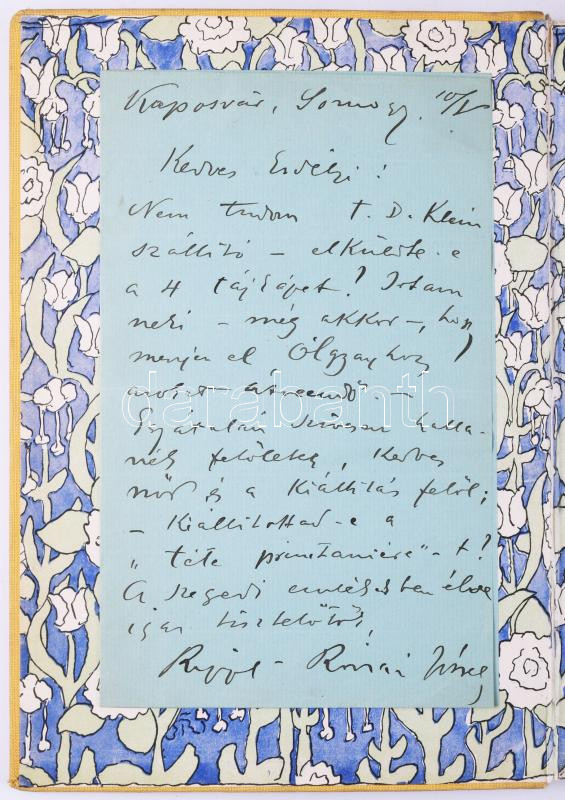 Kaposvár, Somogy. 10/V
Kedves Erdélyi!
Nem tudom T. D. Klein
szállitó – elküldte-e
a 4 tájképet? Irtam
neki – még akkor –, hogy
menjen el Ölgyayhoz
azokat – átveendő. –
Egyátalán szivesen halla-
nék felőletek, Kedves
nőd és a Kiállitás felől;
– Kiállitottad-e a
„tête printanière"-t?
A szegedi emlékekben élve
igaz tisztelőtök,
Rippl-Rónai József
darabanth